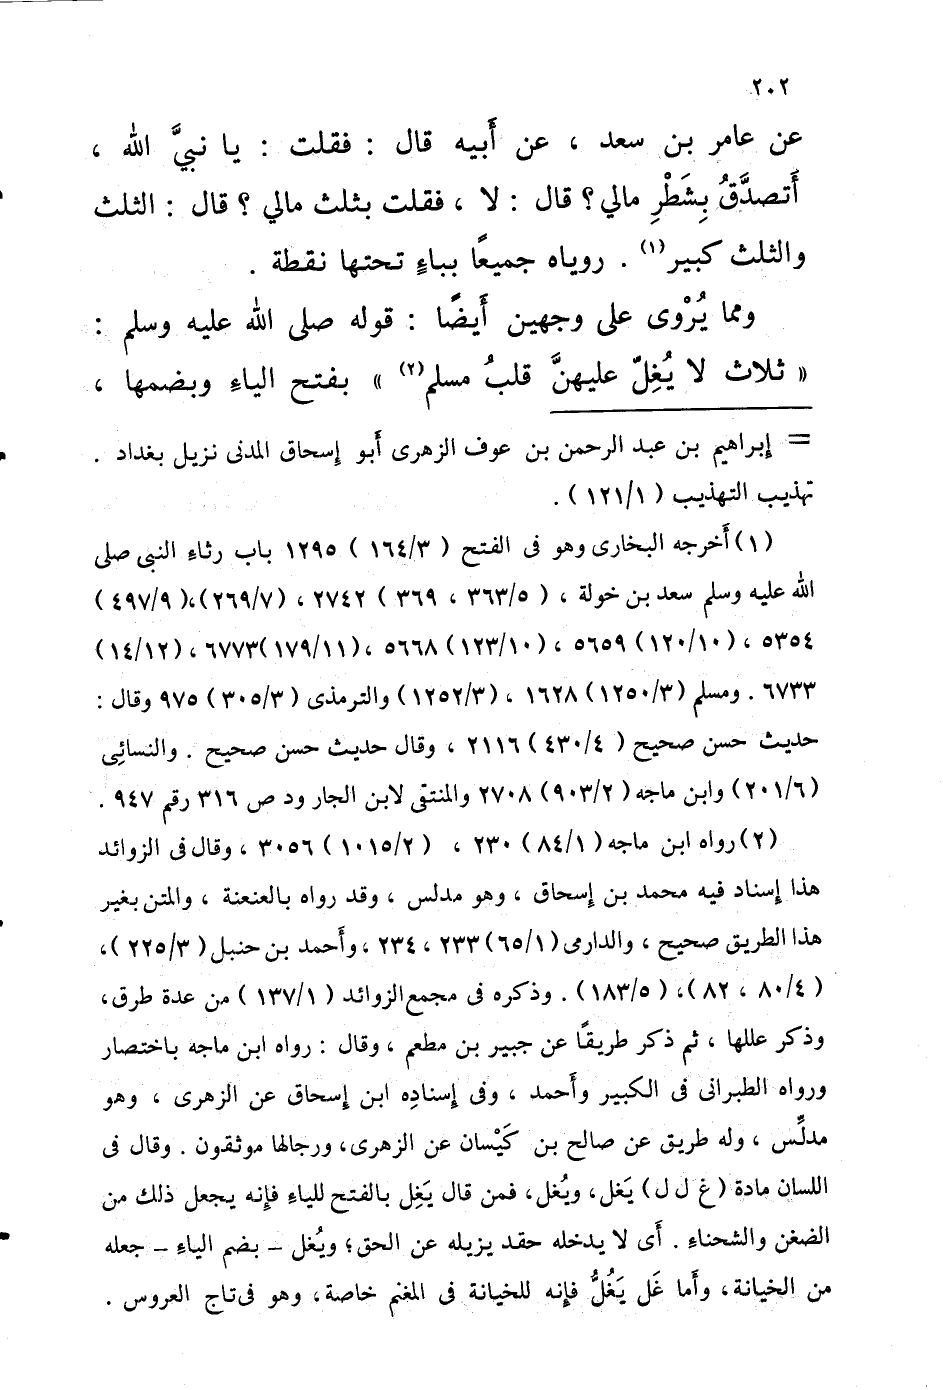 ٢٠٢
عن عامر بن سعد ، عن أَبيه قال : فقلت : يا نبيَّ الله ،
أَتصدَّقُ بِشَطْرِ مالي ؟ قال : لا ، فقلت بثلث مالي ؟ قال : الثلث
والثلث كبير(١) . روياه جميعًا بباءٍ تحتها نقطة .
ومما يُرْوى على وجهين أَيضًا : قوله صلى الله عليه وسلم :
« ثلاث لا يُغِلّ عليهنَّ قلبُ مسلم(٢) » بفتح الياءِ وبضمها ،
= إبراهيم بن عبد الرحمن بن عوف الزهرى أَبو إسحاق المدنى نزيل بغداد .
تهذيب التهذيب ( ١٢١/١ ) .
(١) أَخرجه البخارى وهو فى الفتح ( ١٦٤/٣ ) ١٢٩٥ باب رثاء النبى صلى
الله عليه وسلم سعد بن خولة ، ( ٣٦٣/٥ ، ٣٦٩ ) ٢٧٤٢ ، (٢٦٩/٧)،( ٤٩٧/٩ )
٥٣٥٤ ، (١٢٠/١٠) ٥٦٥٩ ، (١٢٣/١٠) ٥٦٦٨ ،(١٧٩/١١)٦٧٧٣ ، (١٤/١٢)
٦٧٣٣ . ومسلم (١٢٥٠/٣) ١٦٢٨ ، (١٢٥٢/٣) والترمذى ( ٣٠٥/٣ ) ٩٧٥ وقال :
حديث حسن صحيح ( ٤٣٠/٤ ) ٢١١٦ ، وقال حديث حسن صحيح . والنسائِى
(٢٠١/٦) وابن ماجه ( ٩٠٣/٢) ٢٧٠٨ والمنتقى لابن الجار ود ص ٣١٦ رقم ٩٤٧ .
(٢) رواه ابن ماجه ( ٨٤/١ ) ٢٣٠ ، ( ١٠١٥/٢ ) ٣٠٥٦ ، وقال فى الزوائد
هذا إسناد فيه محمد بن إسحاق ، وهو مدلس ، وقد رواه بالعنعنة ، والمتن بغير
هذا الطريق صحيح ، والدارمى (٦٥/١) ٢٣٣ ، ٢٣٤ ، وأَحمد بن حنبل ( ٢٢٥/٣ )،
( ٨٠/٤ ، ٨٢ )، ( ١٨٣/٥ ) . وذكره فى مجمع الزوائد ( ١٣٧/١ ) من عدة طرق،
وذكر عللها ، ثم ذكر طريقًا عن جبير بن مطعم ، وقال : رواه ابن ماجه باختصار
ورواه الطبرانى فى الكبير وأَحمد ، وفى إسنادِه ابن إسحاق عن الزهرى ، وهو
مدلِّس ، وله طريق عن صالح بن كَيْسان عن الزهرى، ورجالها موثقون . وقال فى
اللسان مادة ( غ ل ل ) يَغل، ويُغل، فمن قال يَغِل بالفتح للياءِ فإنه يجعل ذلك من
الضغن والشحناءِ . أى لا يدخله حقد يزيله عن الحق؛ ويُغل – بضم الياءِ – جعله
من الخيانة، وأَما غَل يَغُلُّ فإنه للخيانة فى المغنم خاصة، وهو فى تاج العروس .